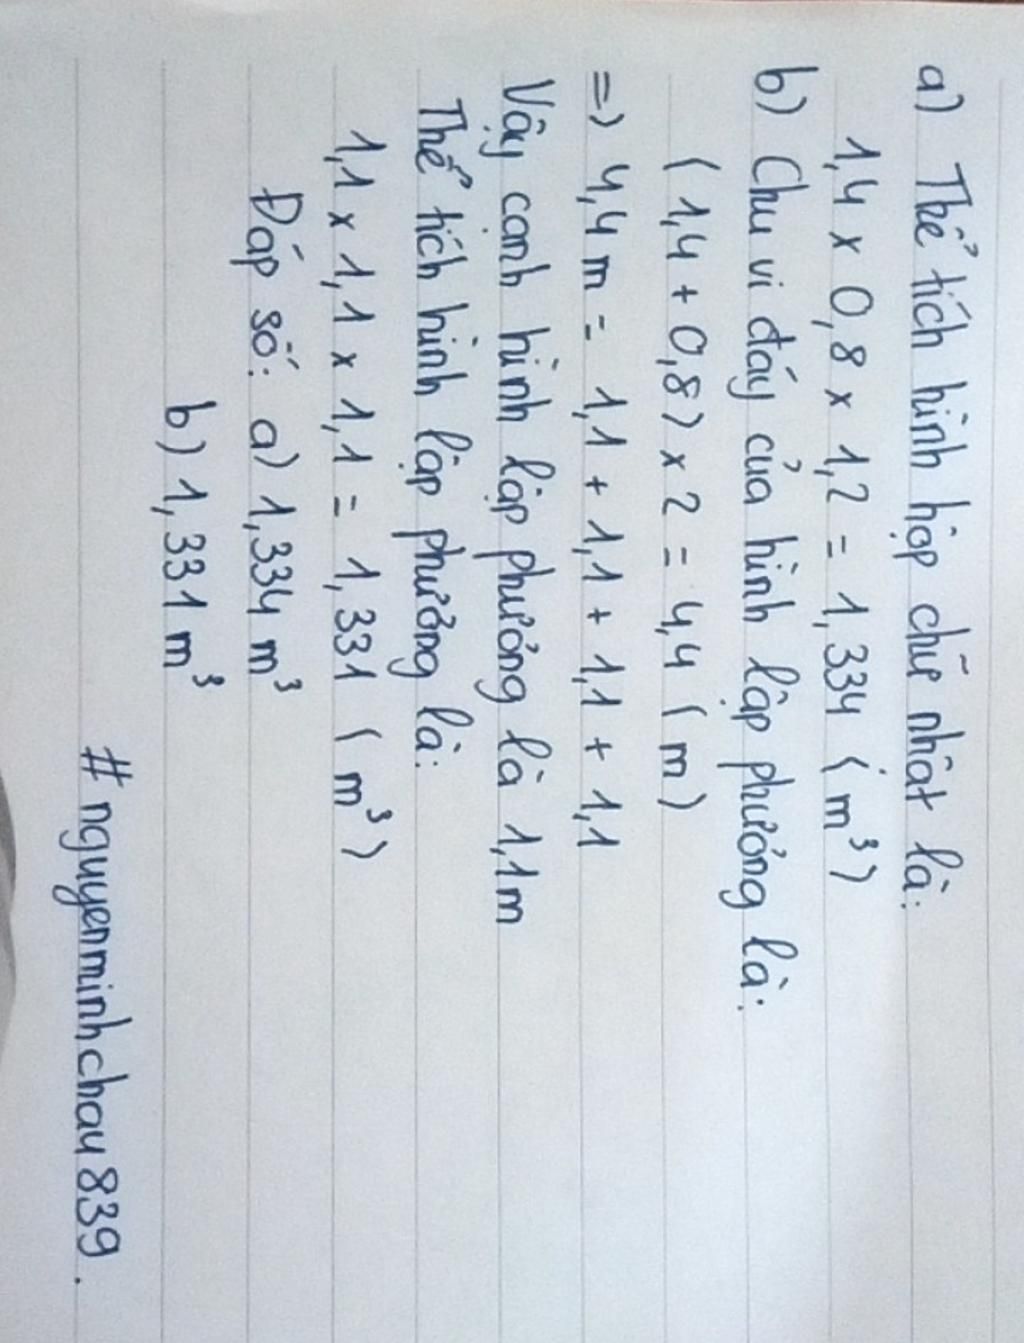 a) Thể tích hình hộp chữ nhât là:
1,4 x 0,8 x 1,2 = 1,334 (m³)
b) Chu vi đáy của hình lập phương là:
(1,4 + 0,8) x 2 = 4,4 (m)
=> 4,4 m = 1,1 + 1,1 + 1,1 + 1,1
Vậy cạnh hình lập phương là 1,1m
Thể tích hình lập phương là:
1,1 x 1,1 x 1,1 = 1,331 (m³)
Đáp số: a) 1,334 m³
b) 1,331 m³
# nguyenminhchau839.